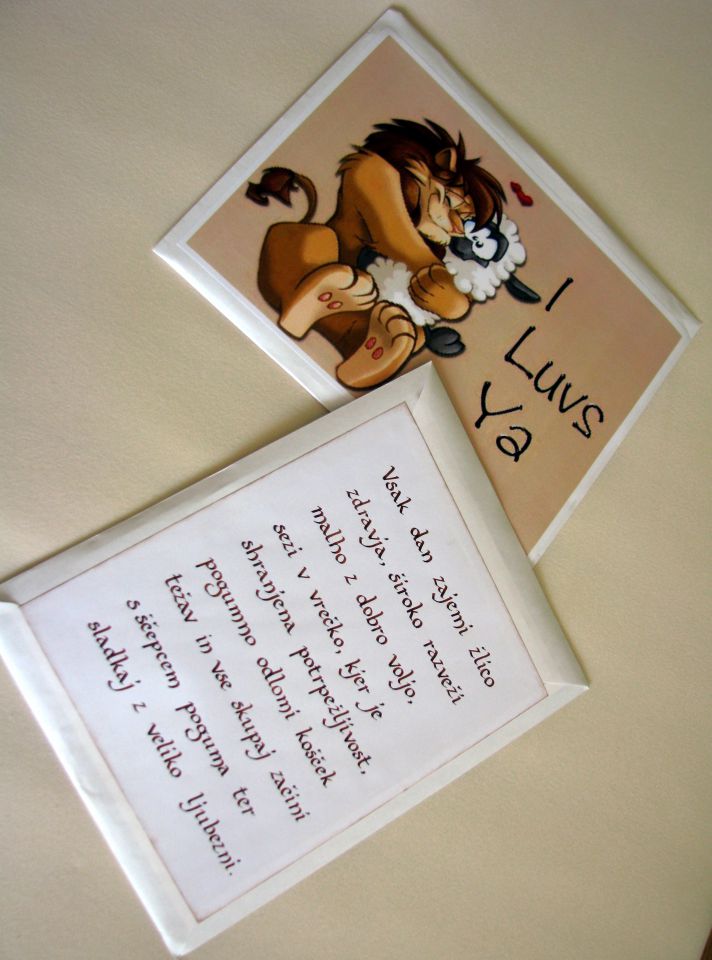 I
Luvs
Ya
Vsak dan zajemi žlico
zdravja, široko razveži
malho z dobro voljo,
sezi v vrečko, kjer je
shranjena potrpežljivost,
pogumno odlomi košček
težav in vse skupaj začini
s ščepcem poguma ter
sladkaj z veliko ljubezni.